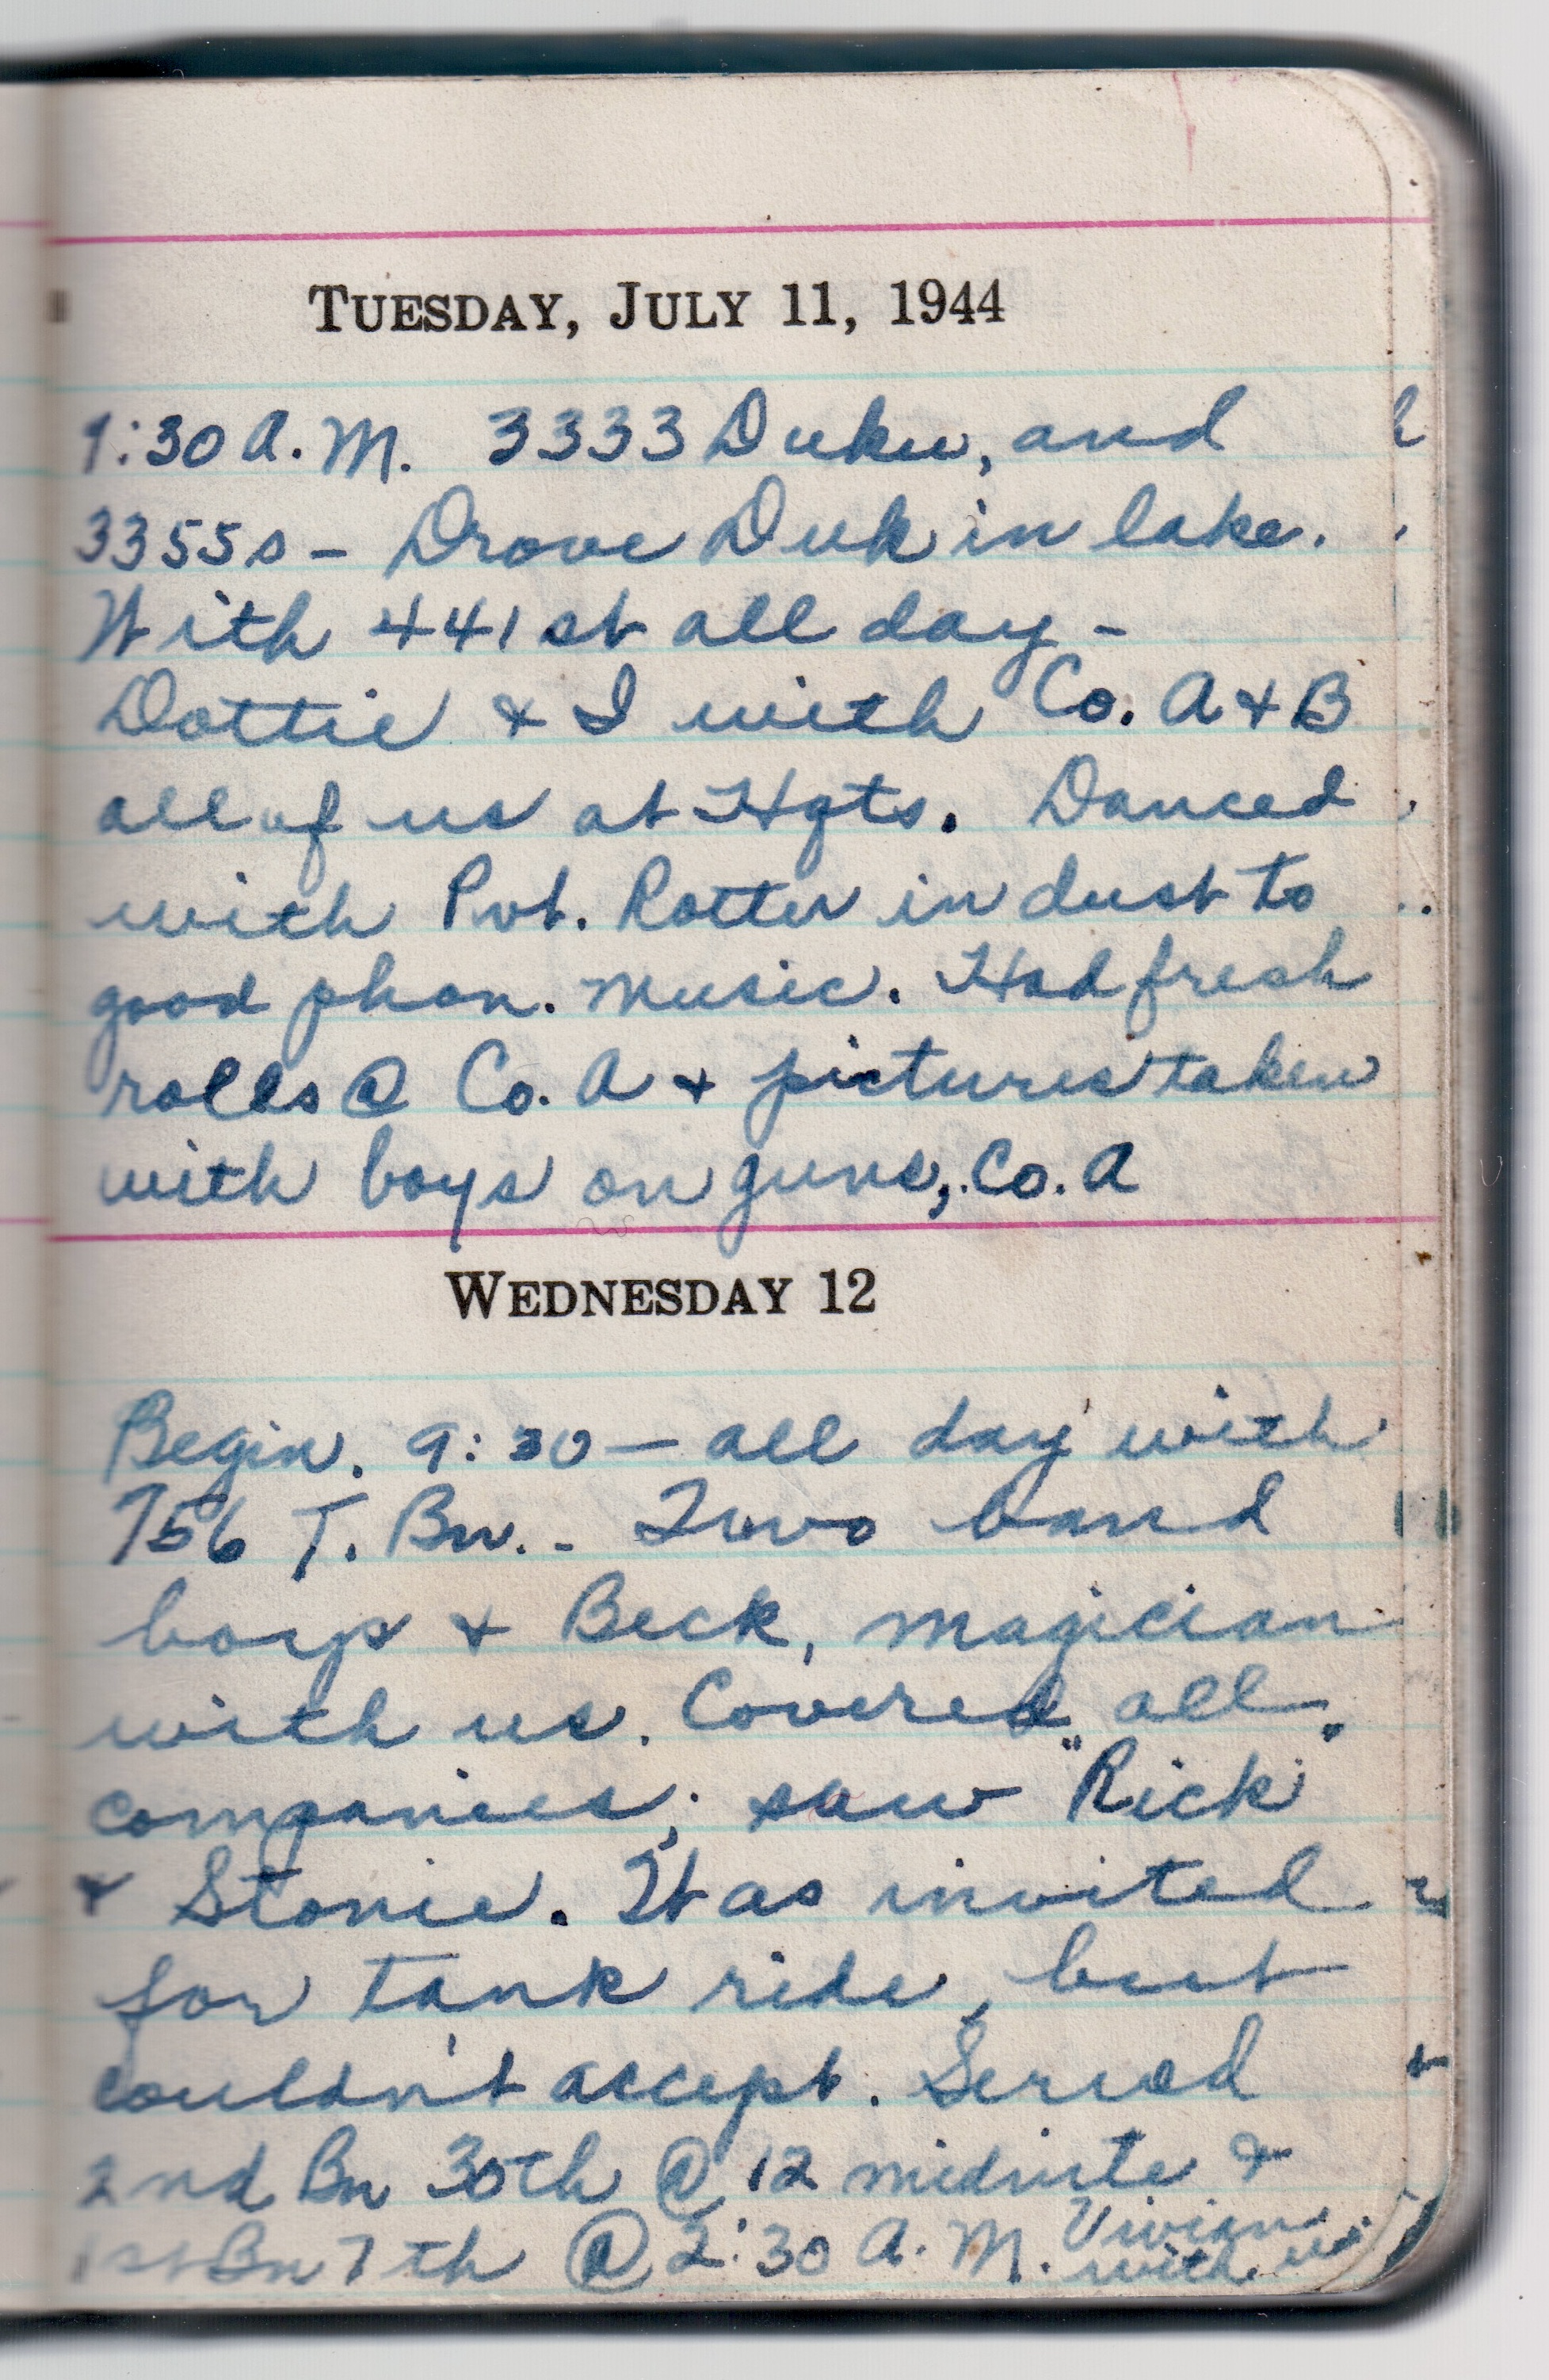 TUESDAY, JULY 11, 1944
9:30 A.M. 3333 Duku, and
3355s – Drove Duk in lake.
With 441st all day –
Dottie & I with Co. A & B
all of us at Hqts. Danced
with Pvt. Rotter in dust to
good phon. music. Had fresh
rolls @ Co. A & pictures taken
with boys on guns, Co. A
WEDNESDAY 12
Begin. 9:30 – all day with
756 T. Bn. – Two band
boys & Beck, magician
with us. Covered all
companies; saw "Rick"
& Stonie. Was invited
for tank ride, but
couldn't accept. Served
2nd Bn 30th @ 12 midnite &
1st Bn 7th @ 2:30 A.M. Vivian
with us